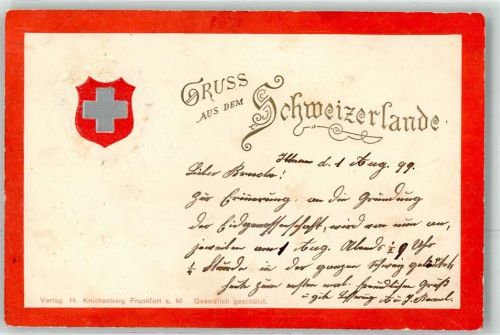 GRUSS
AUS DEM
Schweizerlande
d. 1 Aug. 99.
Lieber
Zur Erinnerung an die Gründung
der Eidgenossenschaft, wird von nun an,
jeweilen am 1 Aug. Abends 9 Uhr
¼ Stunde in der ganzen Schweiz geläutet,
heute zum ersten mal. freundlichen Gruß
u.
Verlag H. Knickenberg, Frankfurt a. M Gesetzlich geschützt.